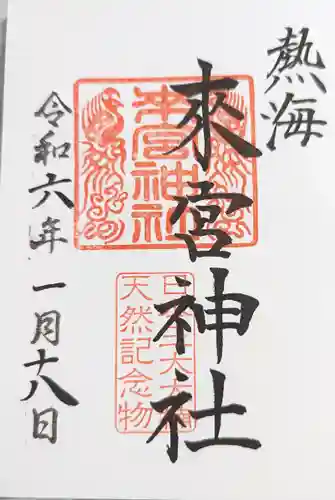 熱海
來宮神社
來宮神社
天然記念物
令和六年一月十八日